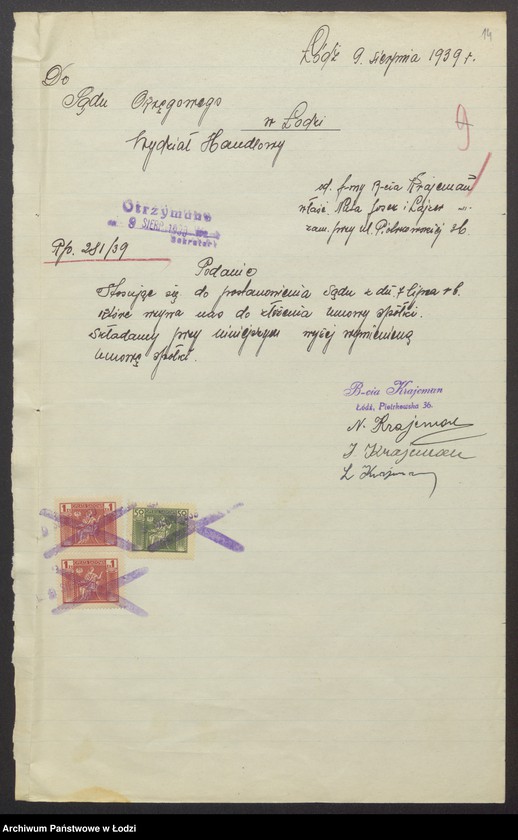 14
Łódź 9. sierpnia 1939 r.
Do
Sądu Okręgowego
w Łodzi
Wydział Handlowy
9
od firmy B-cia Krajeman
właśc. Nuta Josek i Lajzer
zam. przy ul. Piotrkowskiej 36
Otrzymano
9 SIERP. 1939
Sekretarz
Rp. 281/39
Podanie
Stosując się do postanowienia Sądu z dn. 7 lipca rb.
które wzywa nas do złożenia umowy spółki.
Składamy przy niniejszym wyżej wymienioną
umowę spółki.
B-cia Krajcman
Łódź, Piotrkowska 36.
N. Krajcman
J. Krajcman
L Krajcman
1 1
50 50
1 1
Archiwum Państwowe w Łodzi